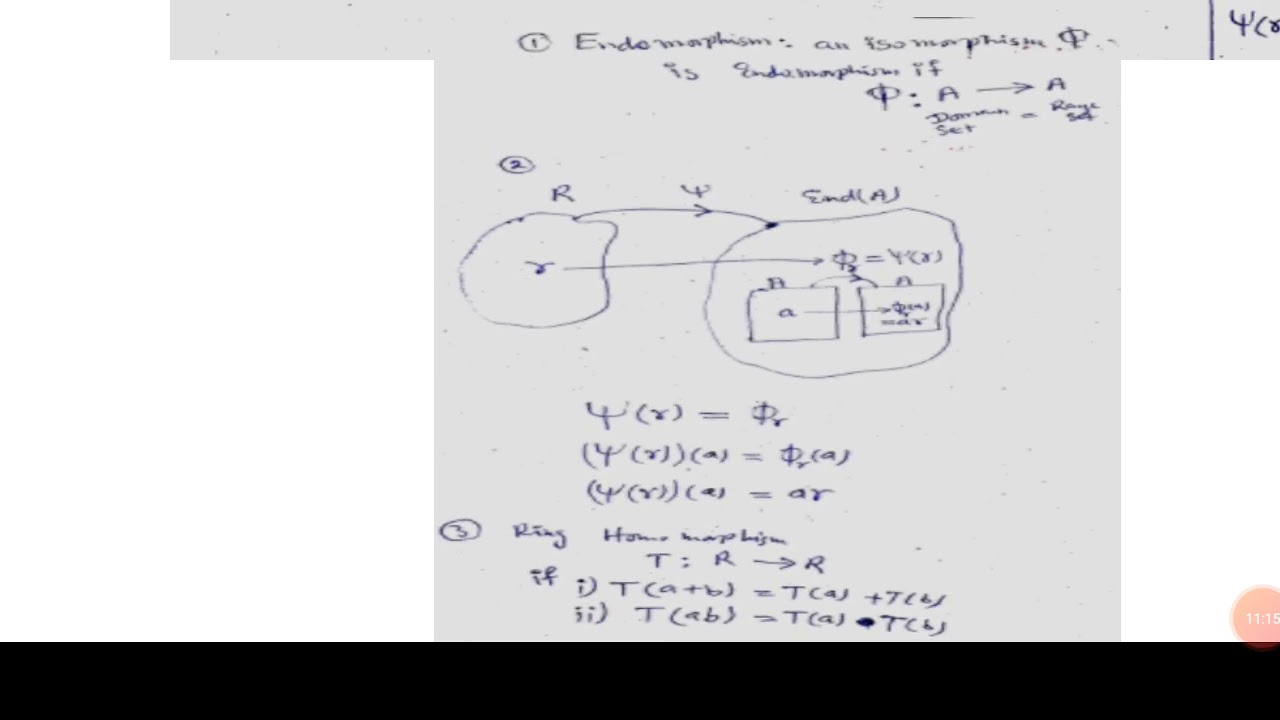 ① Endomorphism: an isomorphism Φ
is Endomorphism if
Φ: A → A
Domain = Range
set set
②
R Ψ End(A)
r Φr = Ψ(r)
A A
a Φr(a)
= ar
Ψ(r) = Φr
(Ψ(r))(a) = Φr(a)
(Ψ(r))(a) = ar
③ Ring Homomorphism
T: R → R
if i) T(a+b) = T(a) + T(b)
ii) T(ab) = T(a) • T(b)
Ψ(r
11:15